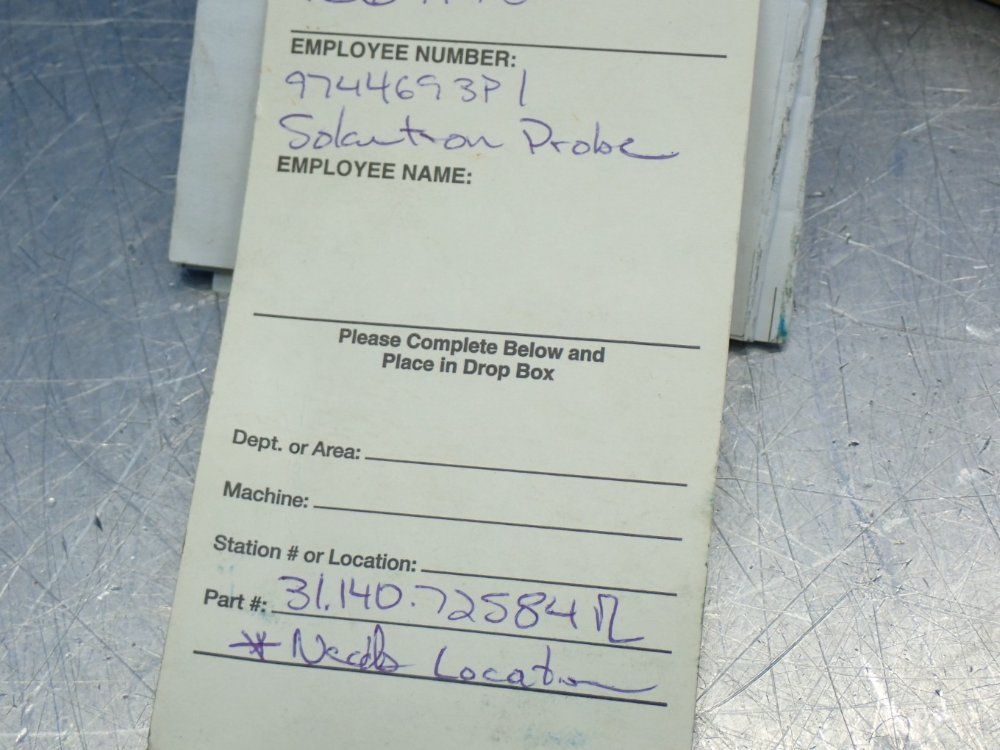 EMPLOYEE NUMBER:
9744693P1
Solartron Probe
EMPLOYEE NAME:
Please Complete Below and
Place in Drop Box
Dept. or Area:
Machine:
Station # or Location:
Part #: 31.140.72584
* Needs Location